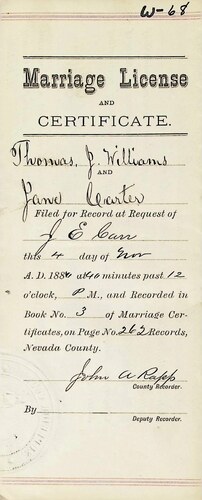 W-68
Marriage License
AND
CERTIFICATE.
Thomas J Williams
AND
Jane Carter
Filed for Record at Request of
J E Carr
this 4 day of Nov
A. D. 1886 at 40 minutes past 12
o'clock, P. M., and Recorded in
Book No. 3 of Marriage Cer-
tificates, on Page No. 262 Records,
Nevada County.
John A Rapp
County Recorder.
By
Deputy Recorder.